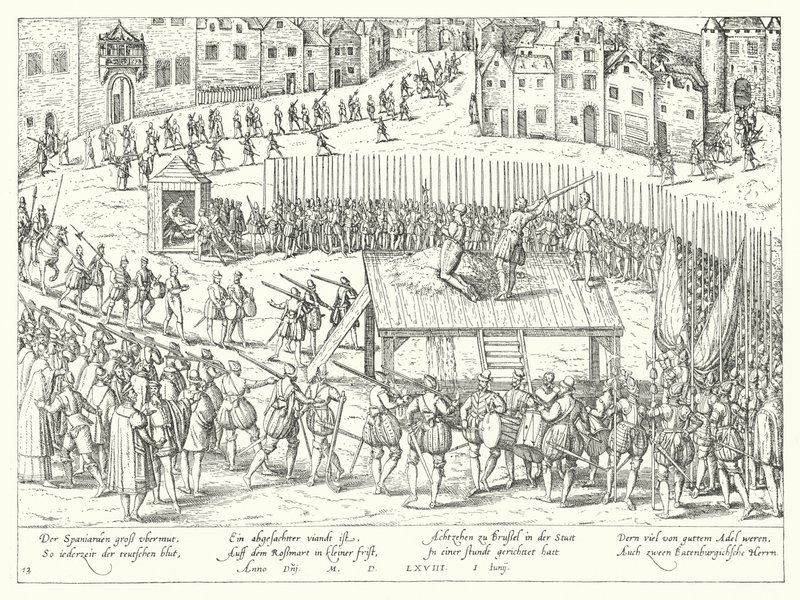 Der Spaniarden groß vbermut, Ein abgesachter viandt ist, Achtzehen zu Brußel in der Statt Dern viel von guttem Adel weren,
So iederzeit der teutschen blut, Auff dem Roßmart in kleiner frist, In einer stundt gerichtet hatt Auch zween Batenburgichsche Herrn.
13 Anno Dñj. M. D. LXVIII. I Iunij.